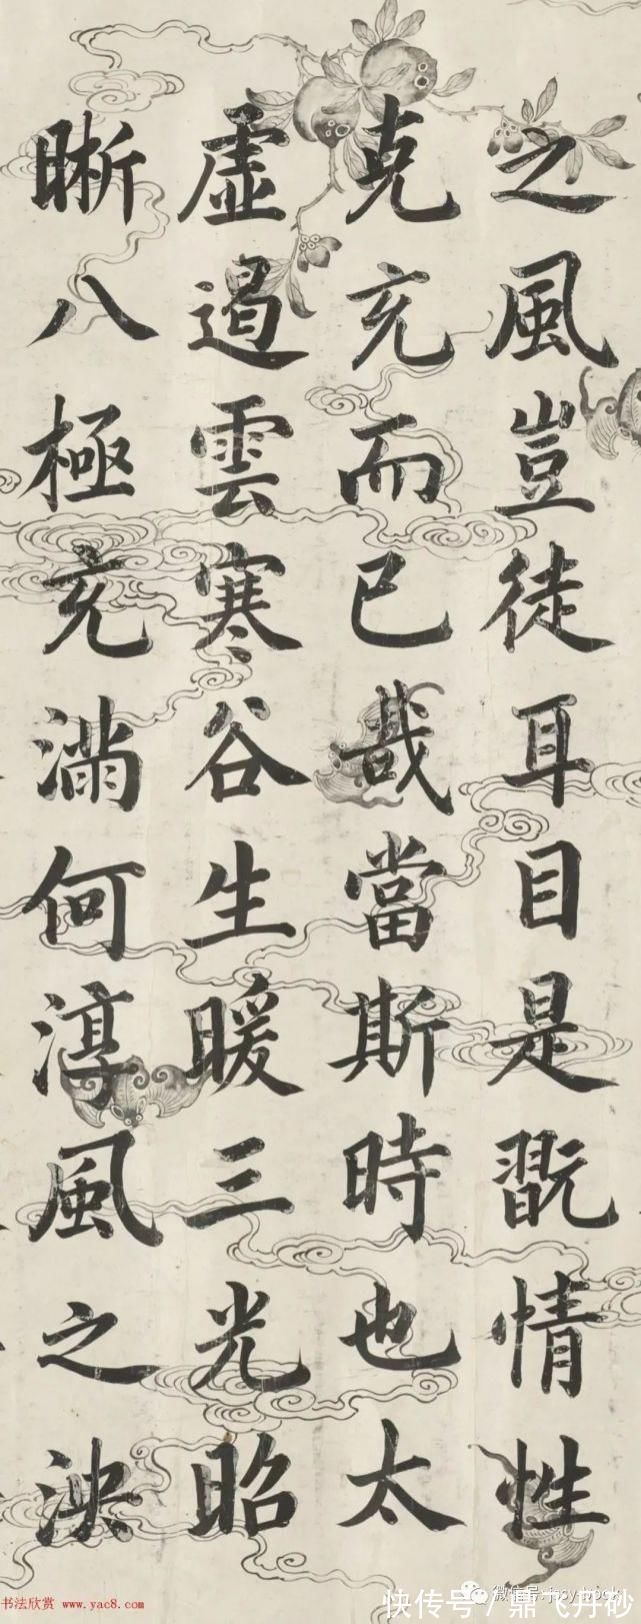 之風豈徒耳目是翫情性
克充而已哉當斯時也太
虛遏雲寒谷生暖三光昭
晰八極充滿何淳風之泱
书法欣赏 www.yac8.com
微信号:
快传号 / 鼎飞丹砂